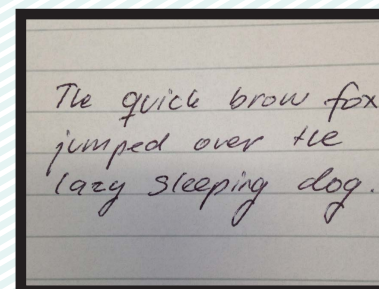 The quick brow fox
jumped over the
lazy sleeping dog.